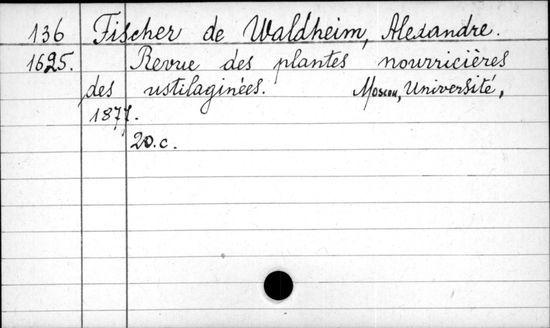 136 Fischer de Waldheim, Alexandre.
1625. Revue des plantes nourricières
des ustilaginées. Moscou, Université,
1877.
20.c.